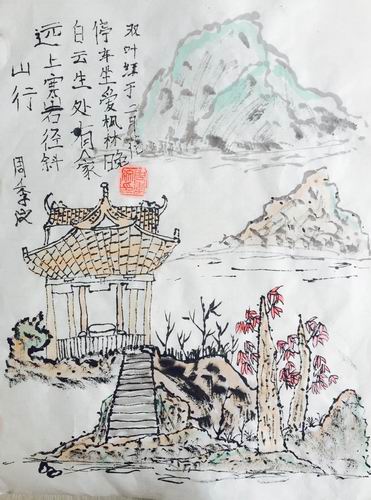 山行
远上寒石径斜
白云生处有家
停车坐爱枫林晚
双叶红于二月花